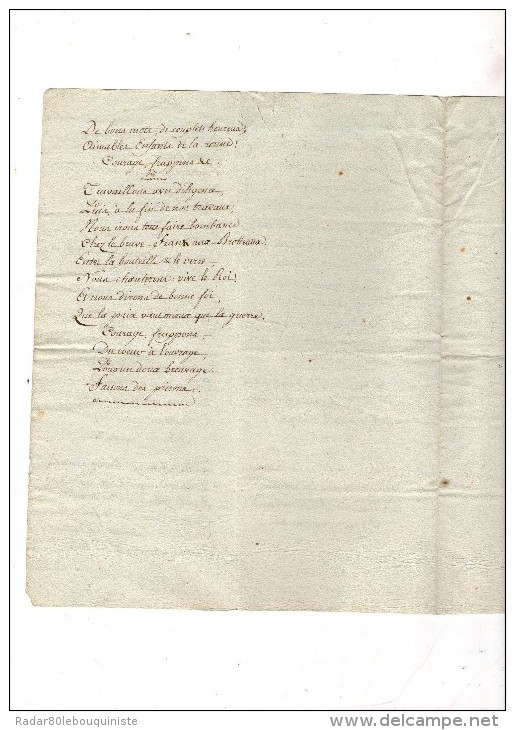 De bons mots, de couplets heureux,
Aimables Enfants de la
Courage, frappons &c.
Travaillons avec diligence,
Puis, à la fin de nos travaux,
Nous irons tous faire bombance
Chez le brave aux Brotteaux.
Entre la bouteille & le verre,
Nous chanterons: vive le Roi!
Et nous dirons de bonne foi,
Que la paix vaut mieux que la guerre.
Courage, frappons,
Du coeur à l'ouvrage,
doux breuvage,
Faisons des
Radar80lebouquiniste
http://www.delcampe.net